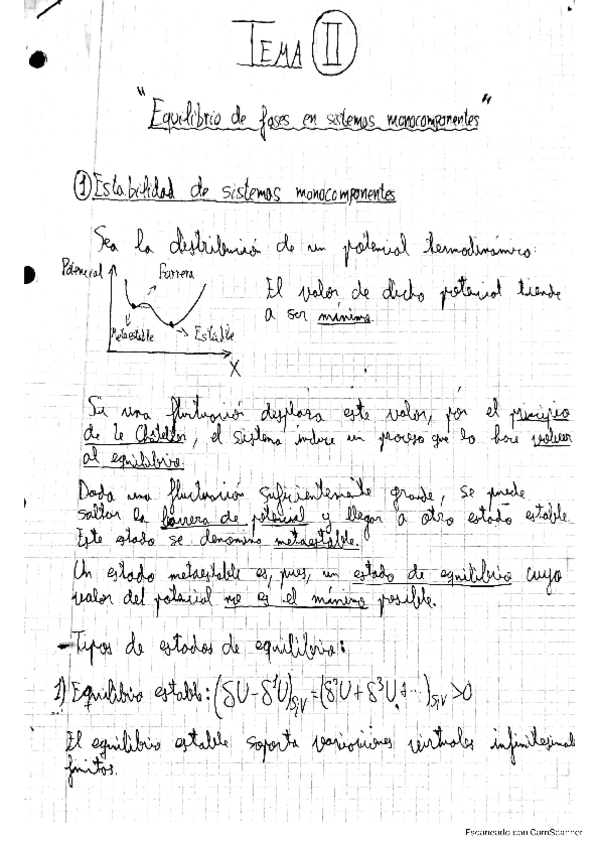 TEMA II
"Equilibrio de fases en sistemas monocomponentes"
1) Estabilidad de sistemas monocomponentes
Sea la distribución de un potencial termodinámico:
Potencial
Barrera
Metaestable
Estable
X
El valor de dicho potencial tiende
a ser mínimo.
Si una fluctuación desplaza este valor, por el principio
de le Châtelier, el sistema induce un proceso que lo hace volver
al equilibrio.
Dada una fluctuación suficientemente grande, se puede
saltar la barrera de potencial y llegar a otro estado estable.
Este estado se denomina metaestable.
Un estado metaestable es, pues, un estado de equilibrio cuyo
valor del potencial no es el mínimo posible.
- Tipos de estados de equilibrio:
1) Equilibrio estable: (δU - δ¹U)s,v = (δ²U + δ³U + ...)s,v > 0
El equilibrio estable soporta variaciones virtuales infinitesimal
finitos.
Escaneado con CamScanner